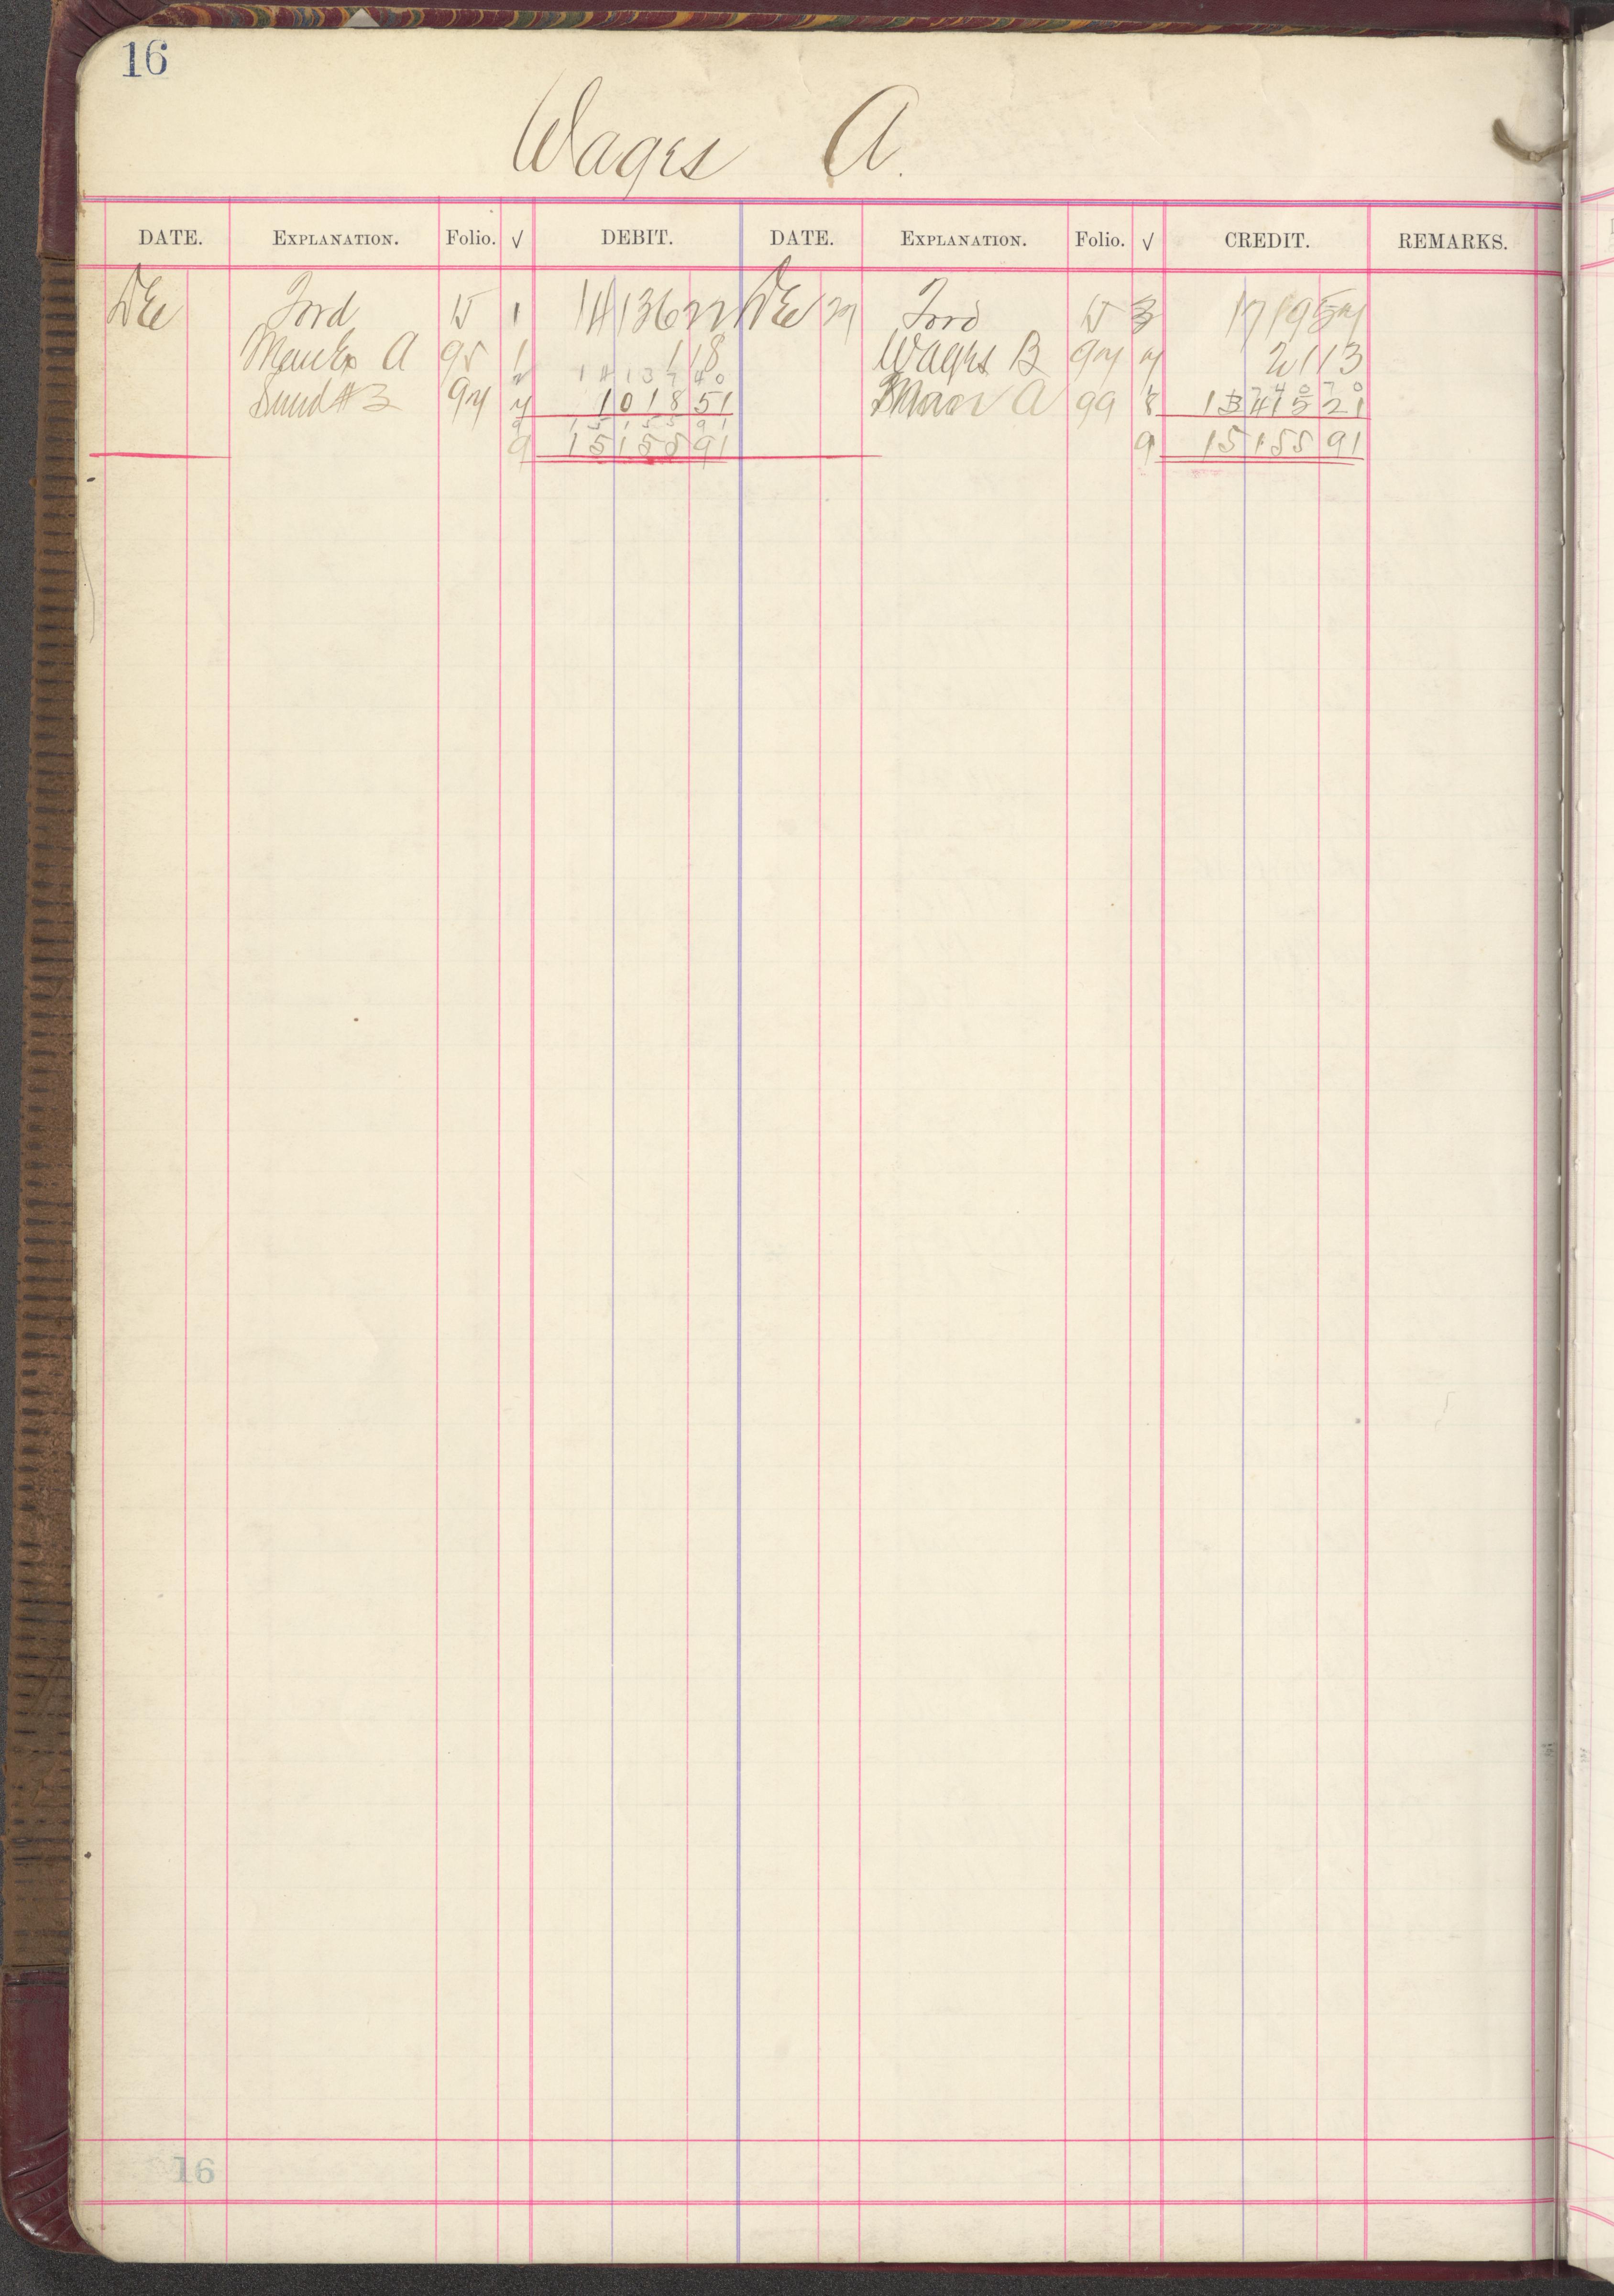 16
Wages A.
DATE. EXPLANATION. Folio. √ DEBIT. DATE. EXPLANATION. Folio. √ CREDIT. REMARKS.
Dec Ford 15 1 14136 22 Dec Ford 15 3 1719 57
A 95 1 1 18 Wages B 97 7 21 13
14137 40 1740 70
Sund #3 97 7 1018 51 A 99 8 13415 21
15155 91
9 15155 91 9 15155 91
16